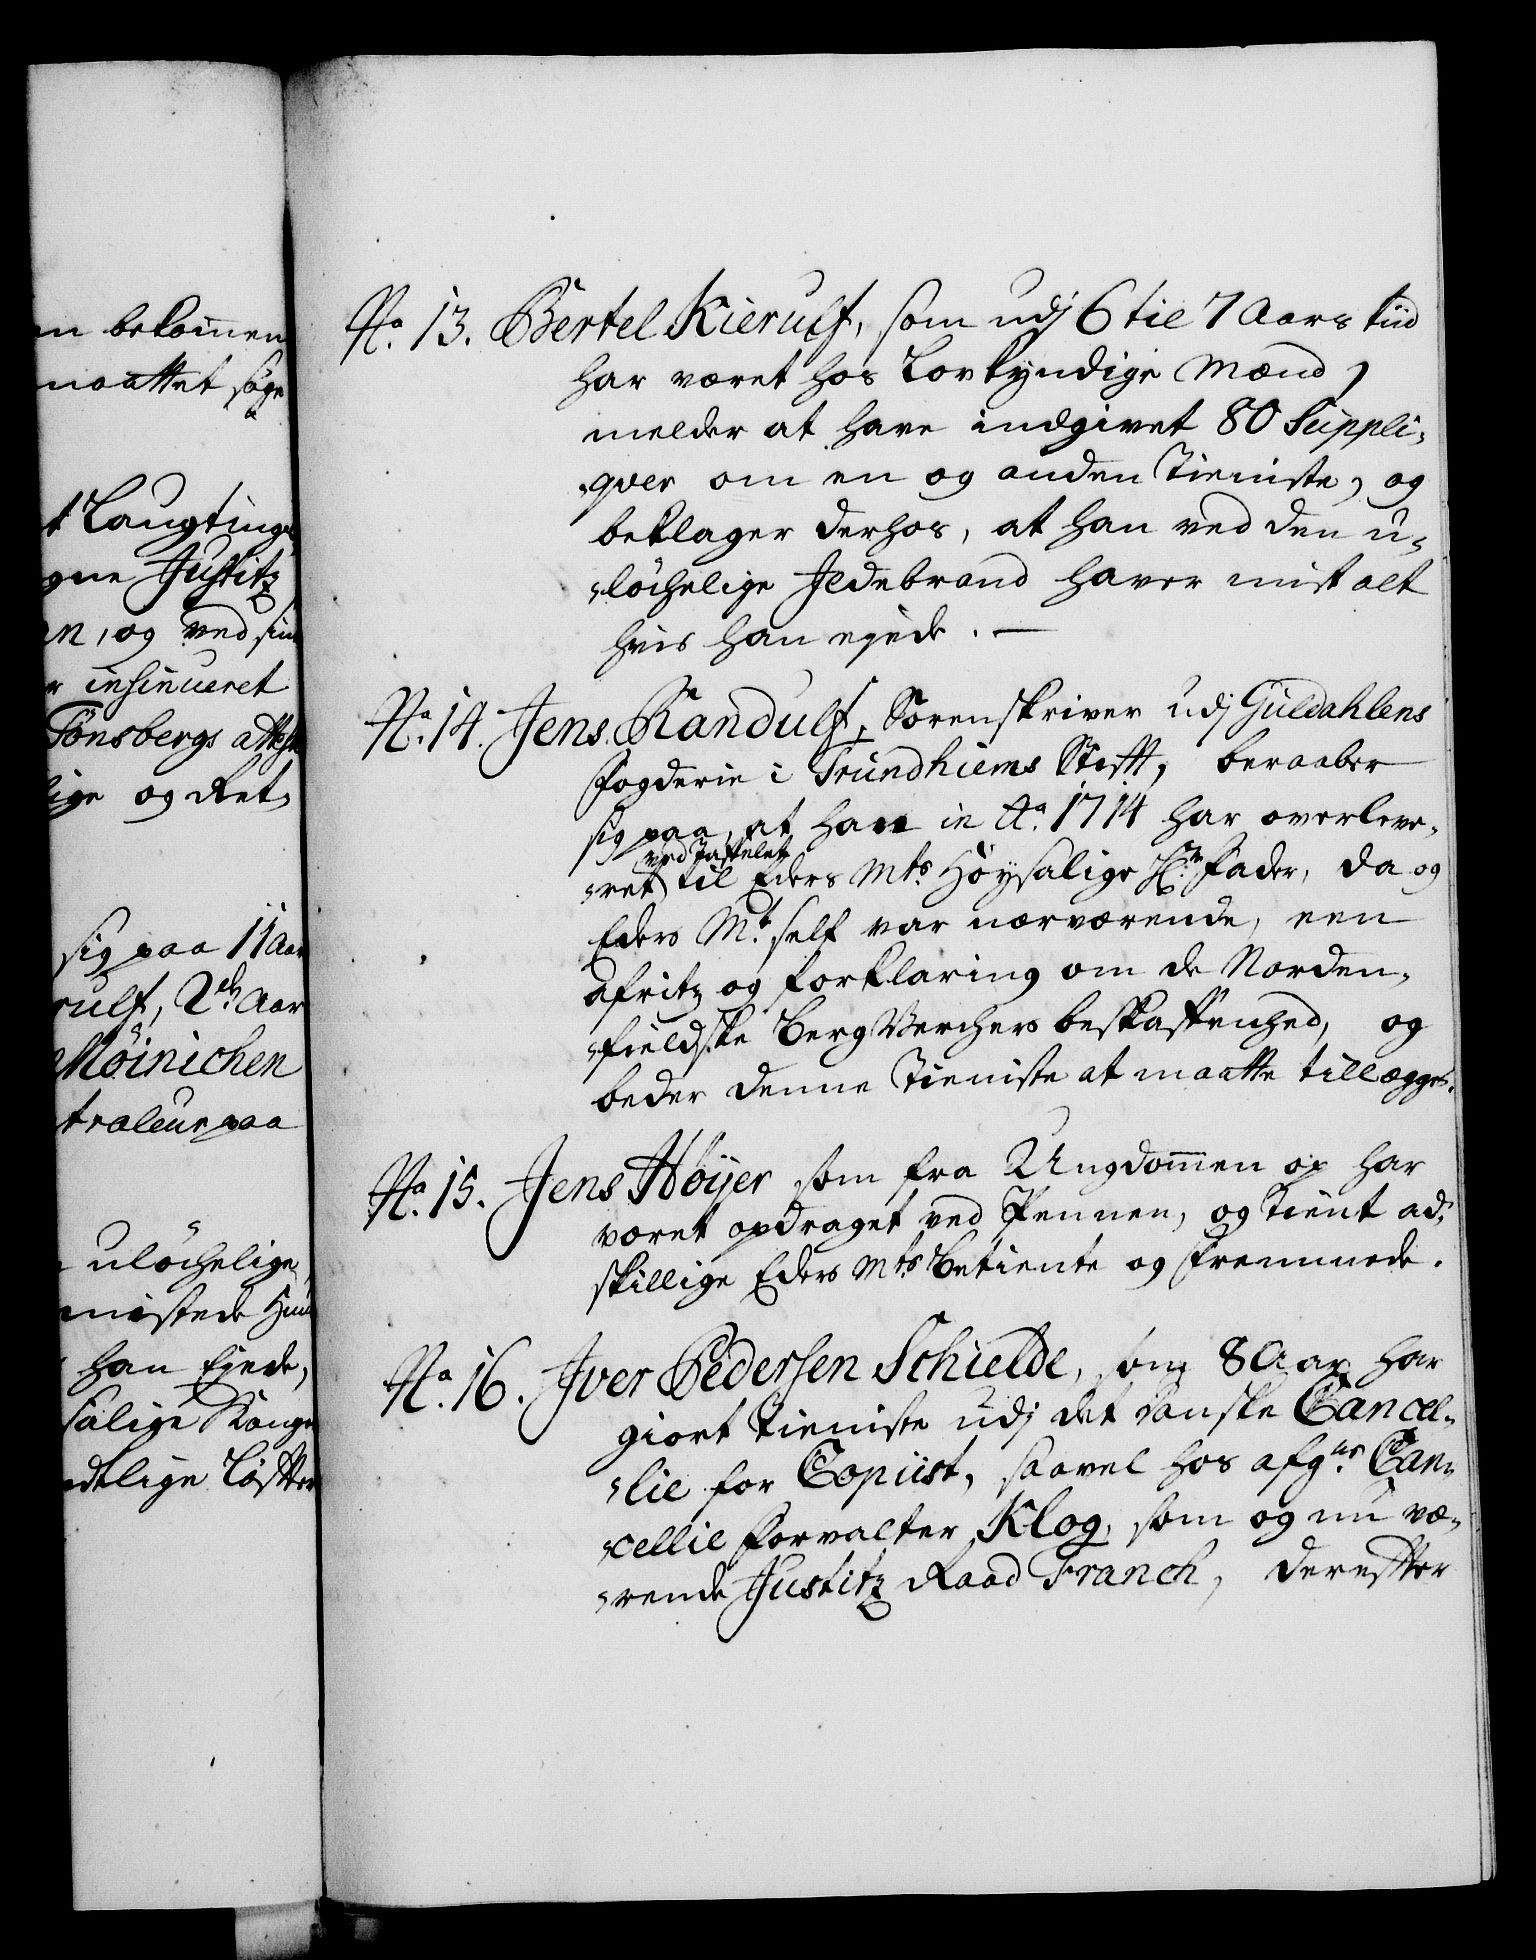 n bekommen
maattet søge
t Laugtings
gne Justitz
n, og ved sin
r insinueret
Tönsbergs atteste
lige og Ret,
sig paa 11 Aar
rulf, 2de Aar
Möinichen
traleur paa
ulöchelige
mistede Huus
han Eiede,
salige Konge
ndtlige Löffter
No. 13. Bertel Kierulf, som udj 6 til 7 Aars tiid
har været hos Lovkyndige Mænd,
melder at have indgivet 80 Suppli-
qver om en og anden Tieniste, og
beklager derhos, at han ved den u-
löchelige Jldebrand haver mist alt
hvis han ejede. —
No. 14. Jens Randulf, Sorenskriver udj Guldahlens
Fogderie i Trundhiems Stifft, beraaber
sig paa, at han in Ao. 1714 har overleve-
ved Taffelet
ret til Eders Mts. Höysalige Hr. Fader, da og
Eders Mt. self var nærværende, een
Afritz og forklaring om de Norden-
fieldske BergVerchers beskaffenhed, og
beder denne Tieniste at maatte tillægges.
No. 15. Jens Höijer som fra Ungdommen op har
været opdraget ved Pennen, og tient ad-
skillige Eders Mts Betiente og Fremmede.
No. 16. Jver Pedersen Schielde, som 8 Aar har
giort Tieniste udj det danske Cancel-
lie for Copiist, saavel hos afgne. Can-
cellie Forvalter Klog, som og nu væ-
rende Justitz Raad Franch, derefter